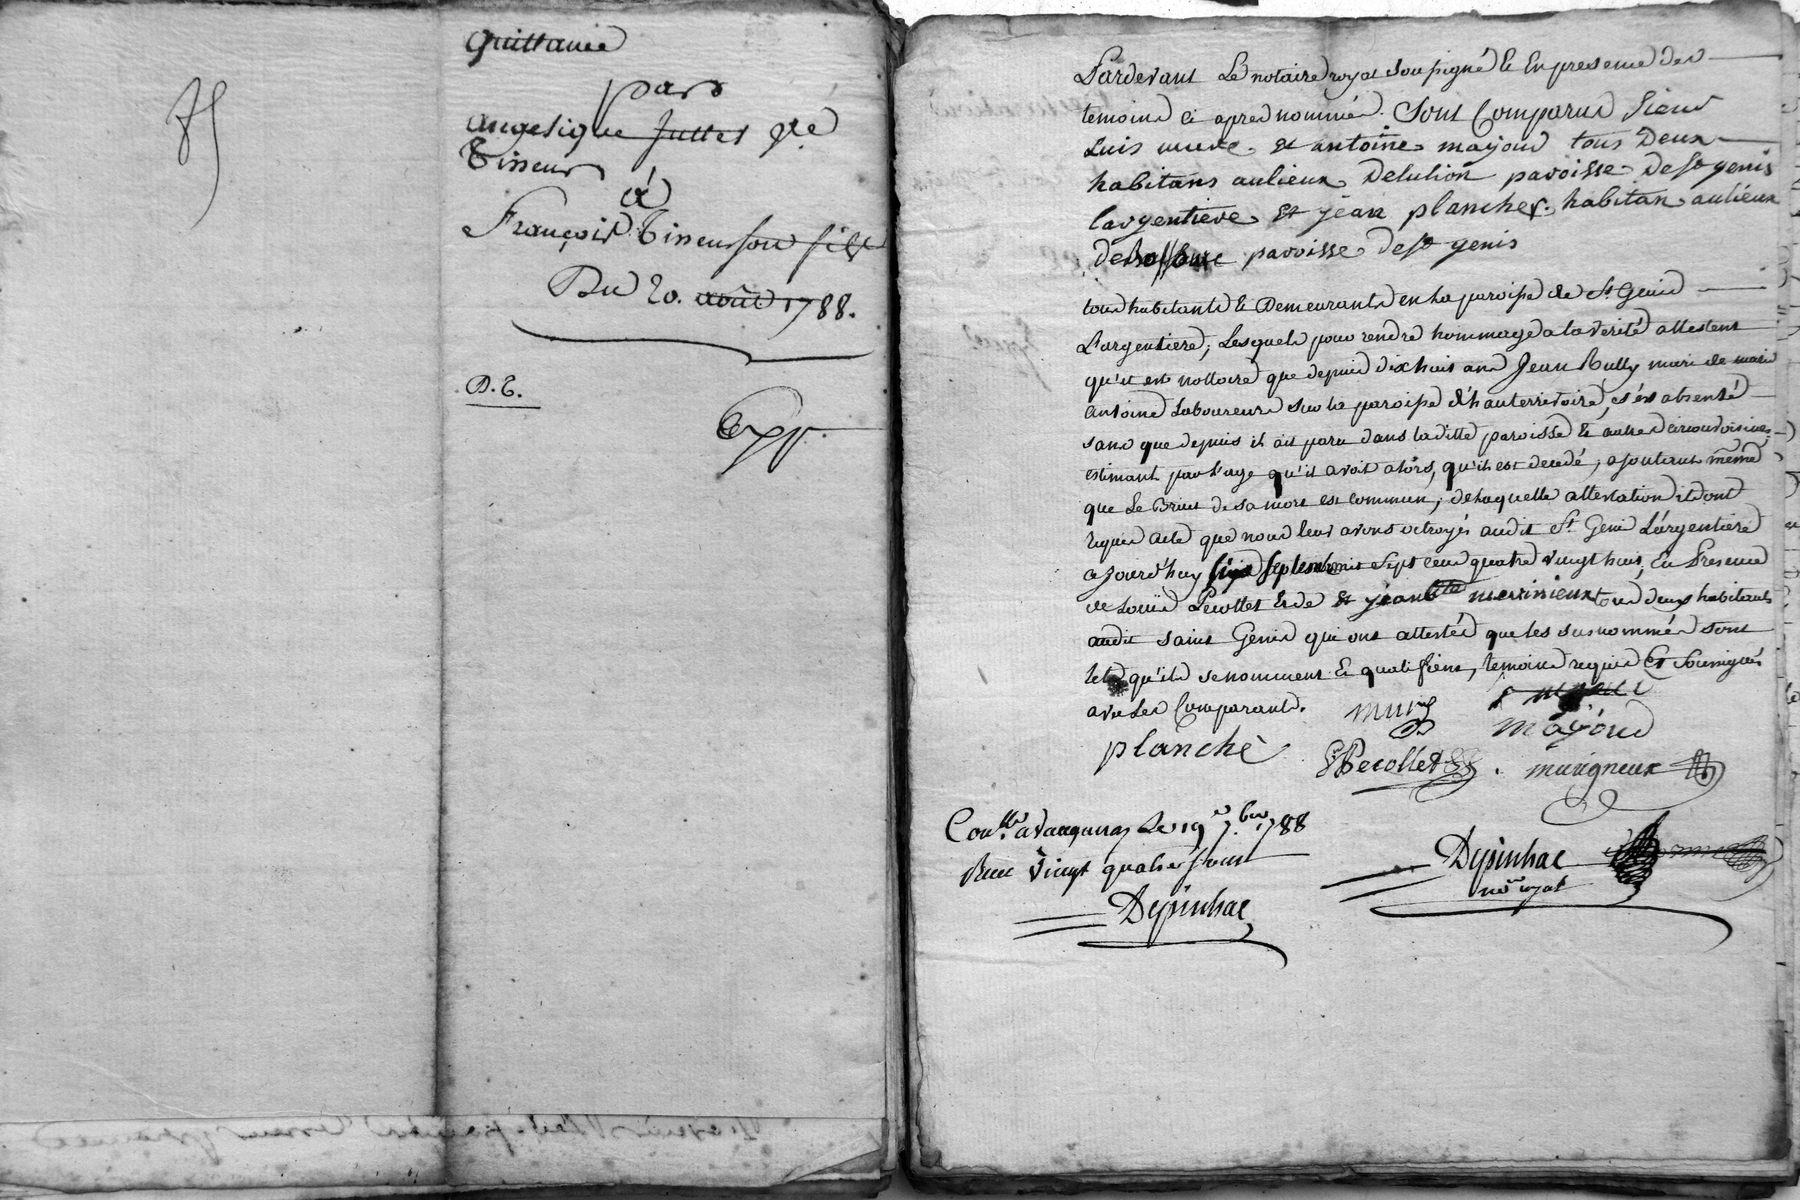 Quittance
par
angelique Juttet Ve
Tisseur
à
François Tisseur son fils
Du 20. août 1788.
D. T.
Exp.
Pardevant Le notaire royal soussigné & En presence des
temoins ci apres nommés. Sont Comparus Sieur
Luis mure et antoine mayoud tous Deux
habitans aulieux Delulion paroisse De st genis
largentiere et jean planche habitan aulieux
de paroisse de st genis
tous habitants & Demeurants en La paroisse de St Genis
L'argentiere, Lesquels pour rendre hommage a la verité attestent
qu'il est nottoire que depuis dix huit ans Jean Rully mari de marie
antoine Laboureur sur la paroisse d'hauterrivoire, s'est absenté
sans que depuis il ait paru dans la ditte paroisse & autres circonvoisines
estimant par l'age qu'il avoit alors, qu'il est decedé, ajoutant même
que Le Bruit de sa mort est commun, de laquelle attestation ils ont
requis acte que nous leur avons octroyés audit St Genis L'argentiere
ajourd'huy six septembre mil Sept cent quatre vingt huit, En Presence
de Louis Pecollet & de et jean bte murinieux tous deux habitants
audit saint Genis qui ont attestés que les susnommés sont
tels qu'ils se nomment & qualifient, temoins requis Et Soussignés
avec Les Comparants.
mure
mayoud
planche
Pecollet
murigneux
Conllé a Vaugneray Le 19 7.bre 1788
Recu Vingt quatre sous
Depinhac
Depinhac
nore royal